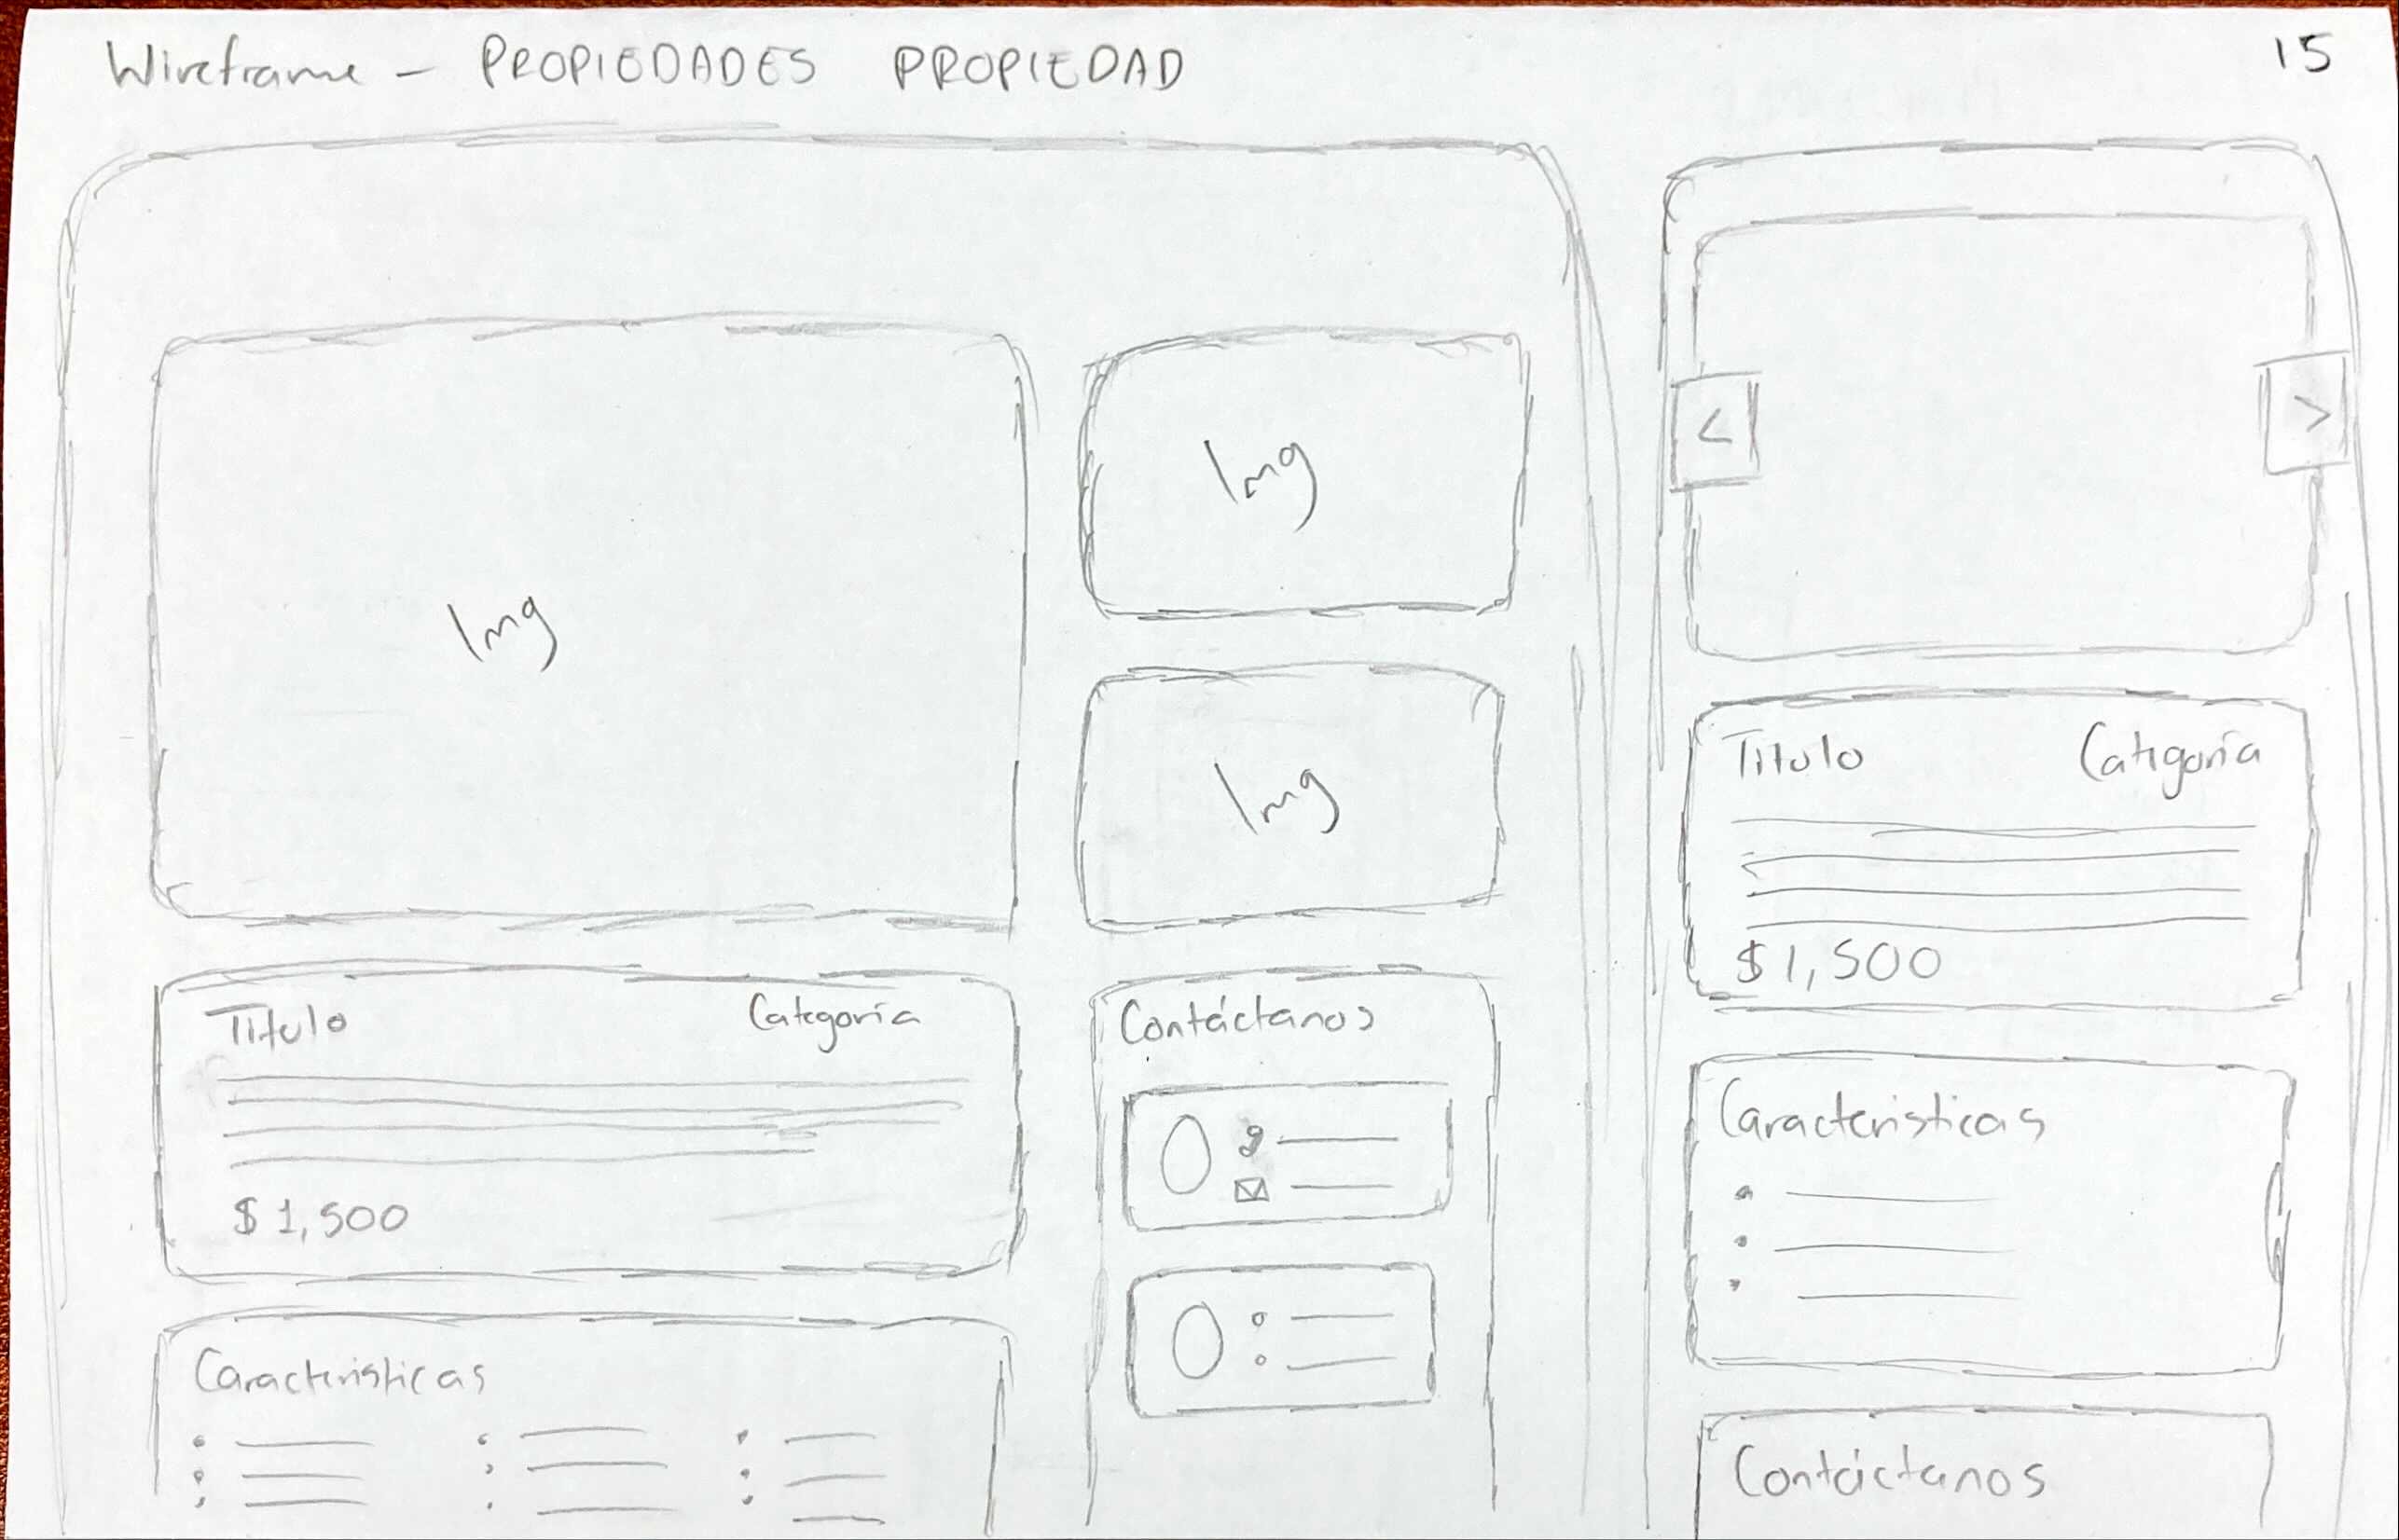 Wireframe - PROPIEDADES PROPIEDAD
15
Img
Img
Img
Titulo Categoría
$1,500
Contáctanos
Caracteristicas
<
>
Titulo Categoría
$1,500
Caracteristicas
Contáctanos